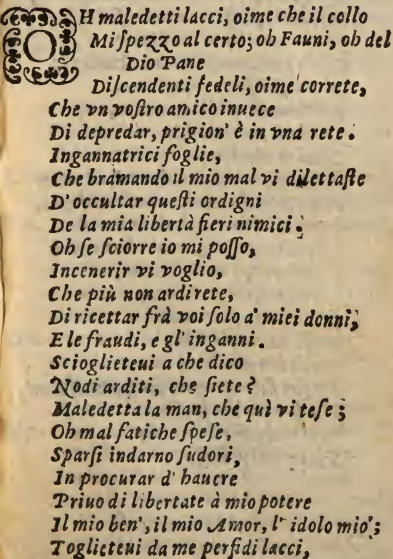 OH maledetti lacci, oime che il collo
Mi ſpezzo al certo; oh Fauni, oh del
Dio Pane
Diſcendenti fedeli, oime correte,
Che vn voſtro amico inuece
Di depredar, prigion' è in vna rete.
Ingannatrici foglie,
Che bramando il mio mal vi dilettaſte
D'occultar queſti ordigni
De la mia libertà fieri nimici.
Oh ſe ſciorre io mi poſſo,
Incenerir vi voglio,
Che più non ardirete,
Di ricettar frà voi ſolo a' miei donni,
E le fraudi, e gl' inganni.
Scioglieteui a che dico
Nodi arditi, che ſiete?
Maledetta la man, che quì vi teſe;
Oh mal fatiche ſpeſe,
Sparſi indarno ſudori,
In procurar d' hauere
Priuo di libertate à mio potere
Il mio ben', il mio Amor, l' idolo mio';
Toglieteui da me perfidi lacci,